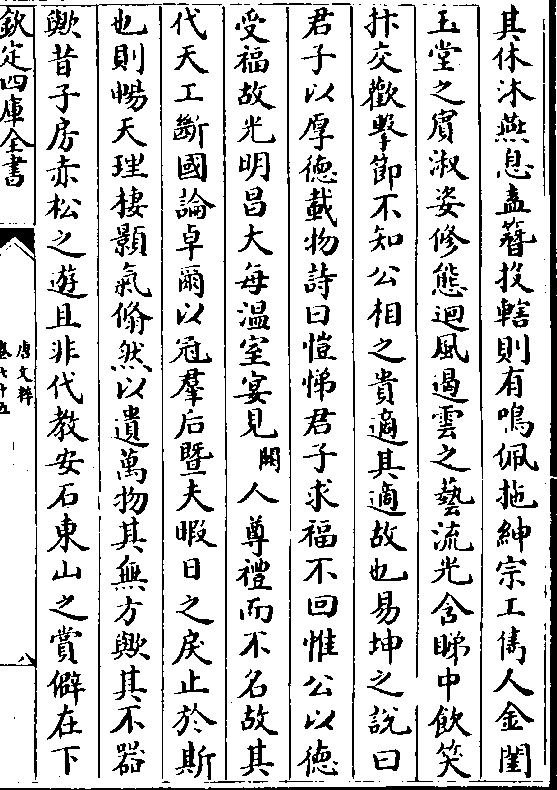 其休沐燕息盍簪投轄則有鳴佩拖紳宗工儁人金閨
玉堂之賓淑姿修態迴風遏雲之藝流光含睇中飲笑
抃交歡擊節不知公相之貴適其適故也易坤之說曰
君子以厚德載物詩曰愷悌君子求福不回惟公以德
受福故光明昌大每溫室宴見闕人尊禮而不名故其
代天工斷國論卓爾以冠羣后暨夫暇日之戾止於斯
也則暢天理棲顥氣翛然以遺萬物其無方歟其不器
歟昔子房赤松之遊且非代教安石東山之賞僻在下
欽定四庫全書
唐文粹
卷七十五
八